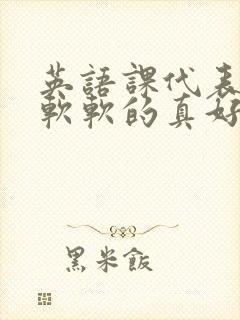 英語課代表
軟軟的真好
黑米飯